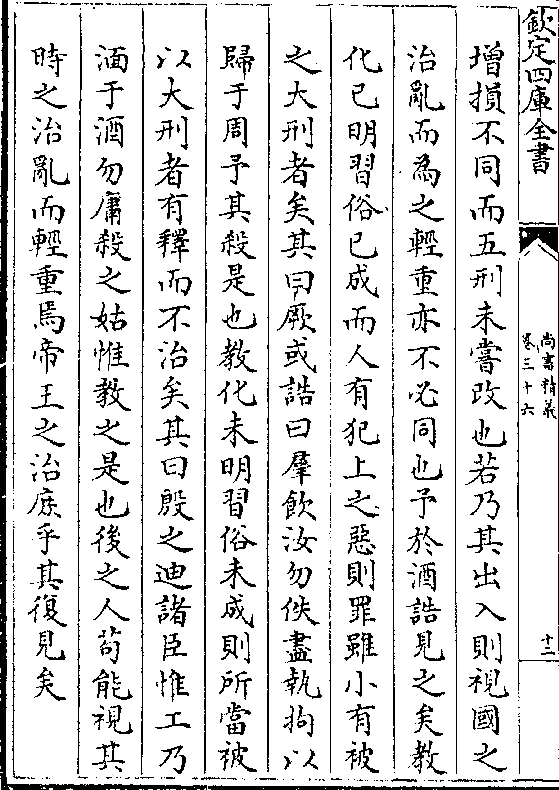 欽定四庫全書
尚書精義
卷三十六
十二
增損不同而五刑未嘗改也若乃其出入則視國之
治亂而為之輕重亦不必同也予於酒誥見之矣教
化已明習俗已成而人有犯上之惡則罪雖小有被
之大刑者矣其曰厥或誥曰羣飲汝勿佚盡執拘以
歸于周予其殺是也教化未明習俗未成則所當被
以大刑者有釋而不治矣其曰殷之迪諸臣惟工乃
湎于酒勿庸殺之姑惟教之是也後之人茍能視其
時之治亂而輕重焉帝王之治庻乎其復見矣